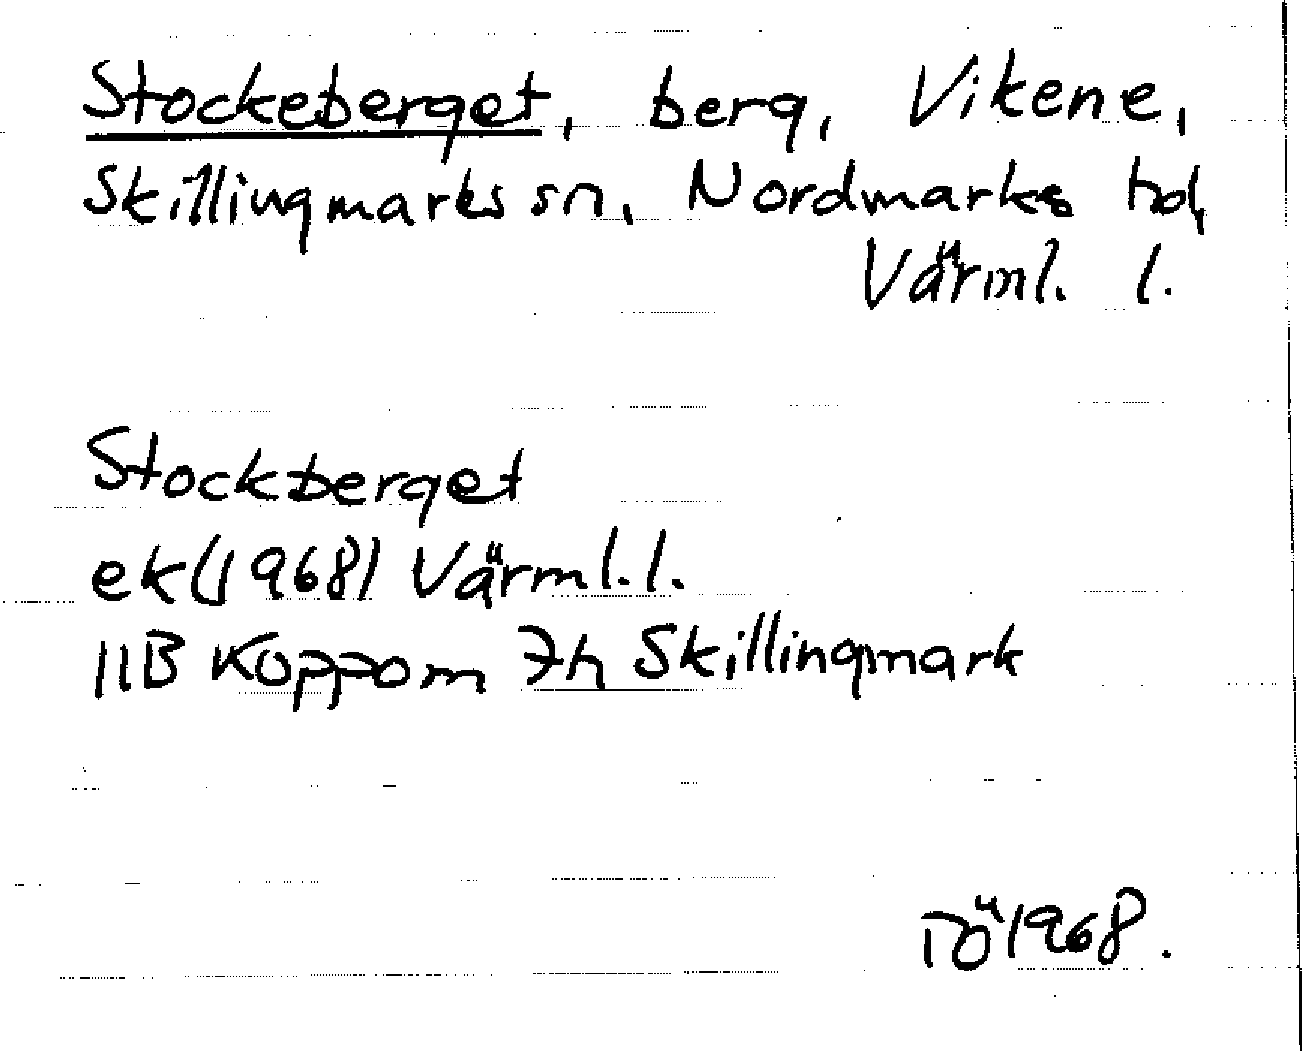 Stockeberget, berg, Vikene,
Skillingmarks sn, Nordmarks hd,
Värml. l.
Stockberget
ek(1968) Värml.l.
11B Koppom 7h Skillingmark
TÖ 1968.